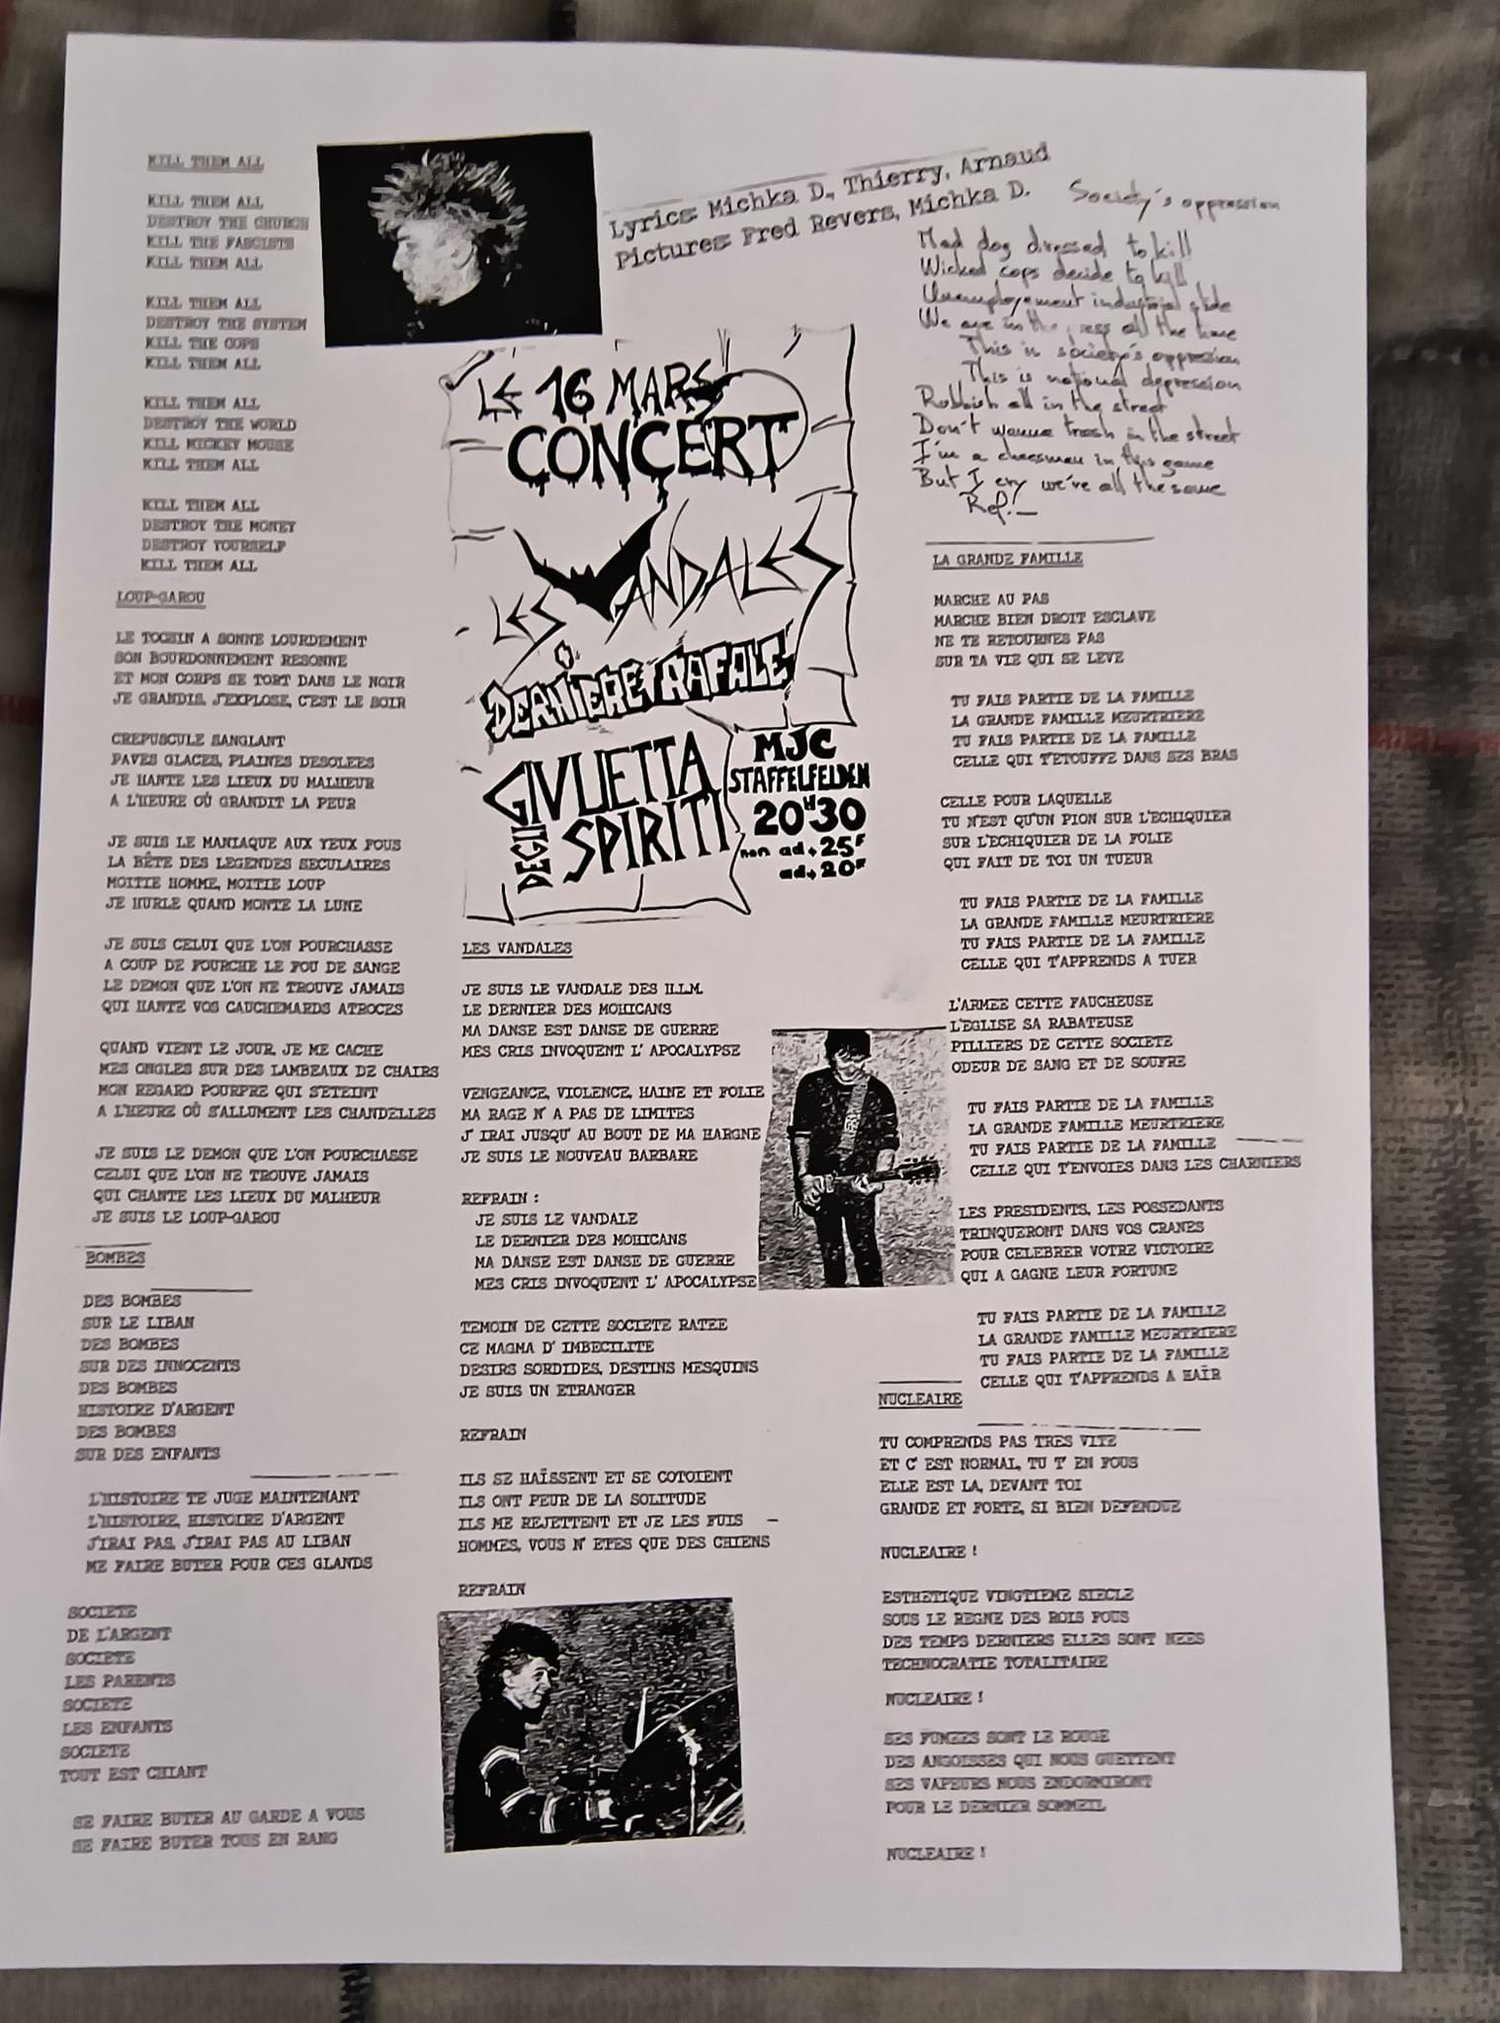 KILL THEM ALL
KILL THEM ALL
DESTROY THE CHURCH
KILL THE FASCISTS
KILL THEM ALL
KILL THEM ALL
DESTROY THE SYSTEM
KILL THE COPS
KILL THEM ALL
KILL THEM ALL
DESTROY THE WORLD
KILL MICKEY MOUSE
KILL THEM ALL
KILL THEM ALL
DESTROY THE MONEY
DESTROY YOURSELF
KILL THEM ALL
LOUP-GAROU
LE TOCSIN A SONNE LOURDEMENT
SON BOURDONNEMENT RESONNE
ET MON CORPS SE TORT DANS LE NOIR
JE GRANDIS, J'EXPLOSE, C'EST LE SOIR
CREPUSCULE SANGLANT
PAVES GLACES, PLAINES DESOLEES
JE HANTE LES LIEUX DU MALHEUR
A L'HEURE OÙ GRANDIT LA PEUR
JE SUIS LE MANIAQUE AUX YEUX FOUS
LA BÊTE DES LEGENDES SECULAIRES
MOITIE HOMME, MOITIE LOUP
JE HURLE QUAND MONTE LA LUNE
JE SUIS CELUI QUE L'ON POURCHASSE
A COUP DE FOURCHE LE FOU DE SANGE
LE DEMON QUE L'ON NE TROUVE JAMAIS
QUI HANTE VOS CAUCHEMARDS ATROCES
QUAND VIENT LE JOUR, JE ME CACHE
MES ONGLES SUR DES LAMBEAUX DE CHAIRS
MON REGARD POURPRE QUI S'ETEINT
A L'HEURE OÙ S'ALLUMENT LES CHANDELLES
JE SUIS LE DEMON QUE L'ON POURCHASSE
CELUI QUE L'ON NE TROUVE JAMAIS
QUI CHANTE LES LIEUX DU MALHEUR
JE SUIS LE LOUP-GAROU
BOMBES
DES BOMBES
SUR LE LIBAN
DES BOMBES
SUR DES INNOCENTS
DES BOMBES
HISTOIRE D'ARGENT
DES BOMBES
SUR DES ENFANTS
L'HISTOIRE TE JUGE MAINTENANT
L'HISTOIRE, HISTOIRE D'ARGENT
J'IRAI PAS, J'IRAI PAS AU LIBAN
ME FAIRE BUTER POUR CES GLANDS
SOCIETE
DE L'ARGENT
SOCIETE
LES PARENTS
SOCIETE
LES ENFANTS
SOCIETE
TOUT EST CHIANT
SE FAIRE BUTER AU GARDE A VOUS
SE FAIRE BUTER TOUS EN RANG
Lyrics: Michka D., Thierry, Arnaud
Pictures: Fred Revers, Michka D.
LE 16 MARS
CONCERT
LES VANDALES
DERNIERE RAFALE
GIULIETTA
DEGLI SPIRITI
MJC
STAFFELFELDEN
20H30
non ad. 25F
ad. 20F
LES VANDALES
JE SUIS LE VANDALE DES H.L.M.
LE DERNIER DES MOHICANS
MA DANSE EST DANSE DE GUERRE
MES CRIS INVOQUENT L' APOCALYPSE
VENGEANCE, VIOLENCE, HAINE ET FOLIE
MA RAGE N' A PAS DE LIMITES
J' IRAI JUSQU' AU BOUT DE MA HARGNE
JE SUIS LE NOUVEAU BARBARE
REFRAIN :
JE SUIS LE VANDALE
LE DERNIER DES MOHICANS
MA DANSE EST DANSE DE GUERRE
MES CRIS INVOQUENT L' APOCALYPSE
TEMOIN DE CETTE SOCIETE RATEE
CE MAGMA D' IMBECILITE
DESIRS SORDIDES, DESTINS MESQUINS
JE SUIS UN ETRANGER
REFRAIN
ILS SE HAÏSSENT ET SE COTOIENT
ILS ONT PEUR DE LA SOLITUDE
ILS ME REJETTENT ET JE LES FUIS
HOMMES, VOUS N' ETES QUE DES CHIENS
REFRAIN
Society's oppression
Mad dog dressed to kill
Wicked cops decide to kill
Unemployement industrial slide
We are in the all the time
This is society's oppression
This is national depression
Rubbish all in the street
Don't wanna trash in the street
I'm a in this game
But I cry we're all the same
Ref!
LA GRANDE FAMILLE
MARCHE AU PAS
MARCHE BIEN DROIT ESCLAVE
NE TE RETOURNES PAS
SUR TA VIE QUI SE LEVE
TU FAIS PARTIE DE LA FAMILLE
LA GRANDE FAMILLE MEURTRIERE
TU FAIS PARTIE DE LA FAMILLE
CELLE QUI T'ETOUFFE DANS SES BRAS
CELLE POUR LAQUELLE
TU N'EST QU'UN PION SUR L'ECHIQUIER
SUR L'ECHIQUIER DE LA FOLIE
QUI FAIT DE TOI UN TUEUR
TU FAIS PARTIE DE LA FAMILLE
LA GRANDE FAMILLE MEURTRIERE
TU FAIS PARTIE DE LA FAMILLE
CELLE QUI T'APPRENDS A TUER
L'ARMEE CETTE FAUCHEUSE
L'EGLISE SA RABATEUSE
PILLIERS DE CETTE SOCIETE
ODEUR DE SANG ET DE SOUFRE
TU FAIS PARTIE DE LA FAMILLE
LA GRANDE FAMILLE MEURTRIERE
TU FAIS PARTIE DE LA FAMILLE
CELLE QUI T'ENVOIES DANS LES CHARNIERS
LES PRESIDENTS, LES POSSEDANTS
TRINQUERONT DANS VOS CRANES
POUR CELEBRER VOTRE VICTOIRE
QUI A GAGNE LEUR FORTUNE
TU FAIS PARTIE DE LA FAMILLE
LA GRANDE FAMILLE MEURTRIERE
TU FAIS PARTIE DE LA FAMILLE
CELLE QUI T'APPRENDS A HAÏR
NUCLEAIRE
TU COMPRENDS PAS TRES VITE
ET C' EST NORMAL, TU T' EN FOUS
ELLE EST LA, DEVANT TOI
GRANDE ET FORTE, SI BIEN DEFENDUE
NUCLEAIRE !
ESTHETIQUE VINGTIEME SIECLE
SOUS LE REGNE DES ROIS FOUS
DES TEMPS DERNIERS ELLES SONT NEES
TECHNOCRATIE TOTALITAIRE
NUCLEAIRE !
SES FUMEES SONT LE ROUGE
DES ANGOISSES QUI NOUS GUETTENT
SES VAPEURS NOUS ENDORMIRONT
POUR LE DERNIER SOMMEIL
NUCLEAIRE !